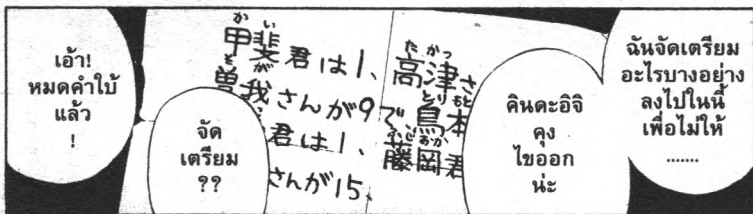 ฉันจัดเตรียม
อะไรบางอย่าง
ลงไปในนี้
เพื่อไม่ให้
.......
คินดะอิจิ
คุง
ไขออก
น่ะ
かい たかつ
甲斐君は1、高津さ
そが とりもと
曽我さんが9で鳥本
君は1、藤岡君
さんが15、
จัด
เตรียม
??
เอ้า!
หมดคำใบ้
แล้ว
!